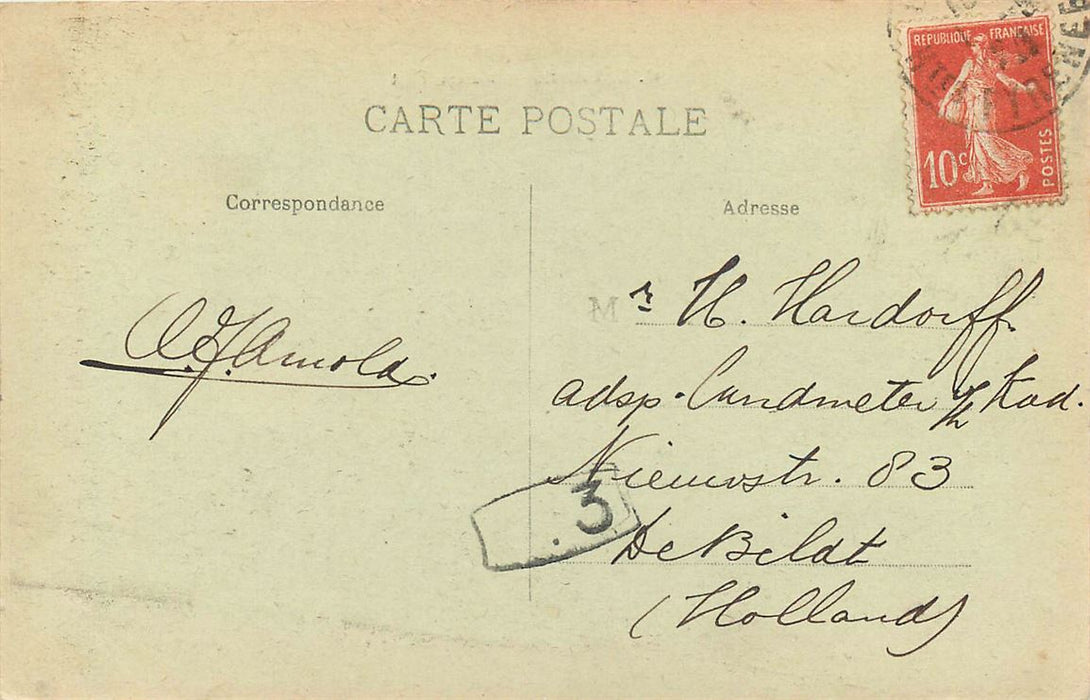 CARTE POSTALE
REPUBLIQUE FRANÇAISE
10c
POSTES
Correspondance
Adresse
Mr H. Hardorff.
adsp. Landmeter v/h Kad.
Nieuwstr. 83
De Bildt
(Holland)
Arnold.
3